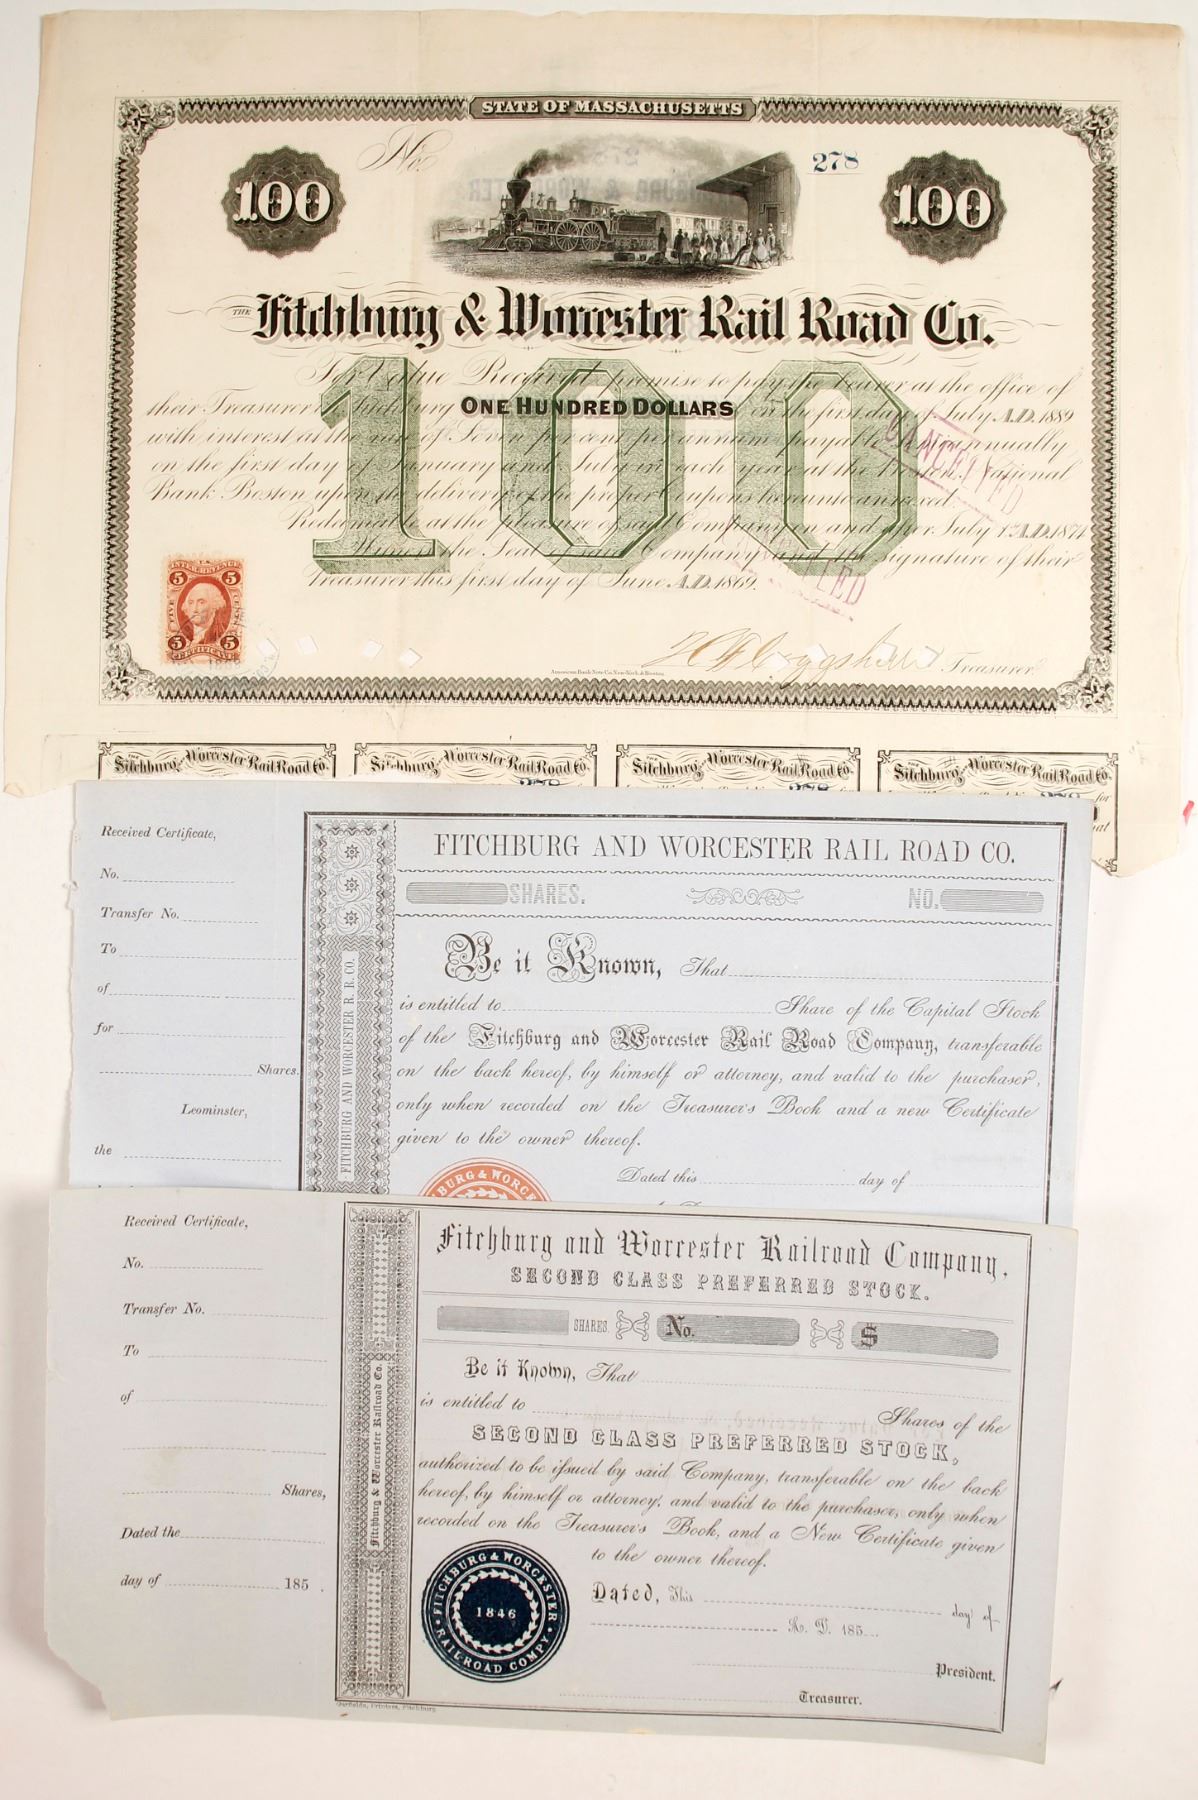 STATE OF MASSACHUSETTS
No. 278
100 100
THE Fitchburg & Worcester Rail Road Co.
100
For Value Received promise to pay the bearer at the office of
their Treasurer in Fitchburg ONE HUNDRED DOLLARS on the first day of July A.D. 1889
with interest at the rate of Seven per cent per annum payable semiannually
on the first day of January and July in each year at the National
Bank Boston upon the delivery of the proper Coupons hereunto annexed.
Redeemable at the pleasure of said Company on and after July 1st A.D. 1874
Witness the Seal of said Company and the signature of their
Treasurer this first day of June A.D. 1869.
CANCELLED
CANCELLED
U.S. INTER. REVENUE
5 5
FIVE CENTS
5 5
CERTIFICATE
Treasurer
American Bank Note Co. New-York & Boston
THE Fitchburg and Worcester Rail Road Co.
THE Fitchburg and Worcester Rail Road Co.
THE Fitchburg and Worcester Rail Road Co.
THE Fitchburg and Worcester Rail Road Co.
278
278
278 for
Received Certificate,
No.
Transfer No.
To
of
for
Shares.
Leominster,
the
FITCHBURG AND WORCESTER R. R. CO.
FITCHBURG AND WORCESTER RAIL ROAD CO.
SHARES. NO.
Be it Known, That
is entitled to Share of the Capital Stock
of the Fitchburg and Worcester Rail Road Company, transferable
on the back hereof, by himself or attorney, and valid to the purchaser,
only when recorded on the Treasurer's Book and a new Certificate
given to the owner thereof.
Dated this day of
BURG & WORC
Received Certificate,
No.
Transfer No.
To
of
Shares,
Dated the
day of 185 .
Fitchburg & Worcester Railroad Co.
Fitchburg and Worcester Railroad Company,
SECOND CLASS PREFERRED STOCK.
SHARES No. $
Be it Known, That
is entitled to Shares of the
SECOND CLASS PREFERRED STOCK,
authorized to be issued by said Company, transferable on the back
hereof, by himself or attorney, and valid to the purchaser, only when
recorded on the Treasurer's Book, and a New Certificate given
to the owner thereof.
Dated, This day of
A. D. 185
President.
Treasurer.
FITCHBURG & WORCESTER
1846
RAIL-ROAD COMPY
Garfields, Printers, Fitchburg